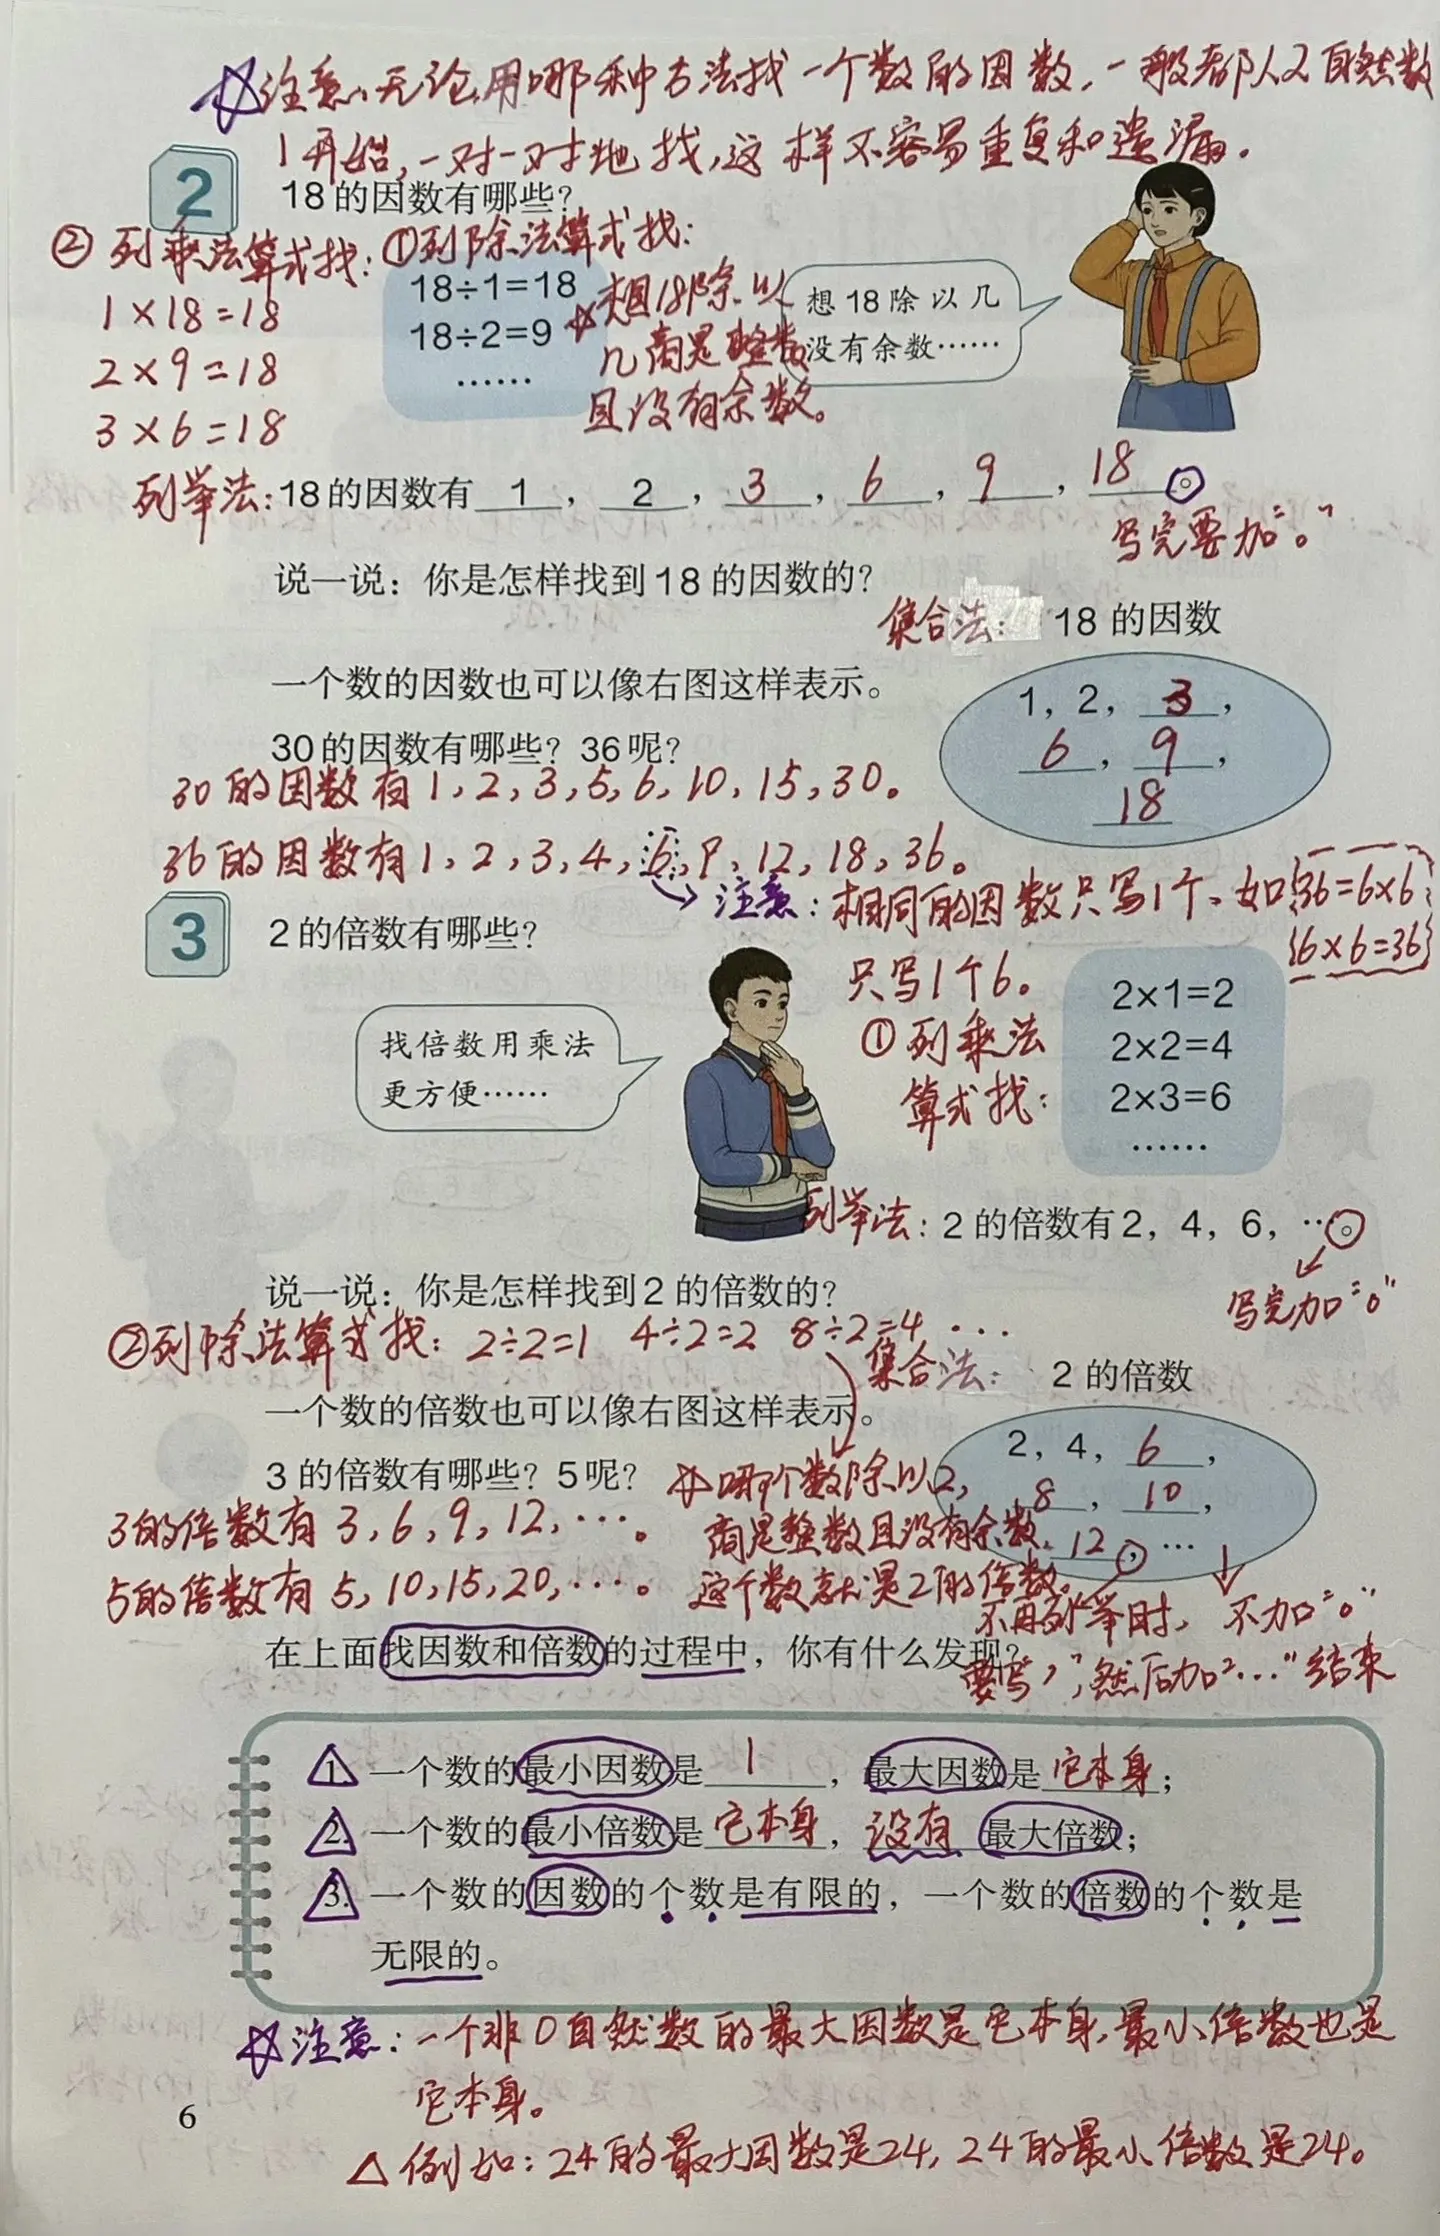 ☆注意:无论用哪种方法找一个数的因数,一般都从自然数
1开始,一对一对地找,这样不容易重复和遗漏。
2
18的因数有哪些?
②列乘法算式找:
1×18=18
2×9=18
3×6=18
①列除法算式找:
18÷1=18
18÷2=9
……
☆想18除以
几商是整数
且没有余数。
想18除以几
没有余数……
列举法:18的因数有 1 , 2 , 3 , 6 , 9 , 18 。
写完要加“。”
说一说:你是怎样找到18的因数的?
集合法: 18的因数
一个数的因数也可以像右图这样表示。
1,2, 3 ,
6 , 9 ,
18
30的因数有哪些?36呢?
30的因数有1,2,3,5,6,10,15,30。
36的因数有1,2,3,4,6,9,12,18,36。
→注意:相同的因数只写1个。如36=6×6
6×6=36
只写1个6。
3
2的倍数有哪些?
找倍数用乘法
更方便……
①列乘法
算式找:
2×1=2
2×2=4
2×3=6
……
列举法:2的倍数有2,4,6,…。
写完加“。”
说一说:你是怎样找到2的倍数的?
②列除法算式找:2÷2=1 4÷2=2 8÷2=4 ···
集合法: 2的倍数
一个数的倍数也可以像右图这样表示。
2,4, 6 ,
8 , 10 ,
12,…
3的倍数有哪些?5呢?
☆哪个数除以2,
商是整数且没有余数,
这个数就是2的倍数。
3的倍数有 3,6,9,12,…。
5的倍数有 5,10,15,20,…。
不再列举时,
要写“,”,然后加“…”结束
不加“。”
在上面找因数和倍数的过程中,你有什么发现?
1. 一个数的最小因数是 1 ,最大因数是 它本身 ;
2. 一个数的最小倍数是 它本身 , 没有 最大倍数;
3. 一个数的因数的个数是有限的,一个数的倍数的个数是
无限的。
☆注意:一个非0自然数的最大因数是它本身,最小倍数也是
它本身。
△例如:24的最大因数是24,24的最小倍数是24。
6